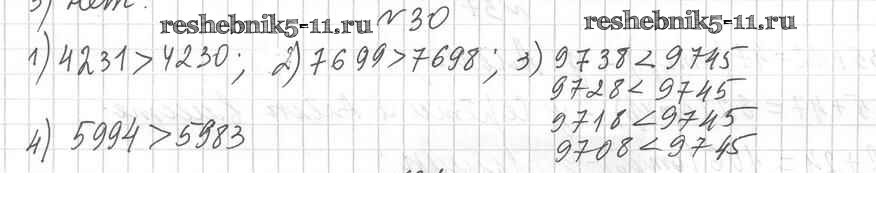 3) нет.
reshebnik5-11.ru №30 reshebnik5-11.ru
1) 4231 > 4230; 2) 7699 > 7698; 3) 9738 < 9745
9728 < 9745
9718 < 9745
4) 5994 > 5983
9708 < 9745